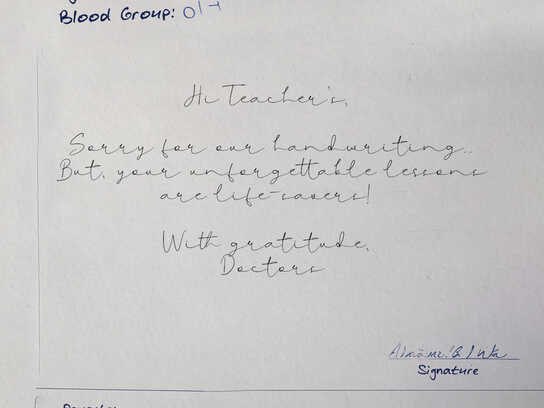 Blood Group:
Hi Teacher's,
Sorry for our handwriting..
But, your unforgettable lessons
are life-savers!
With gratitude,
Doctors
Signature